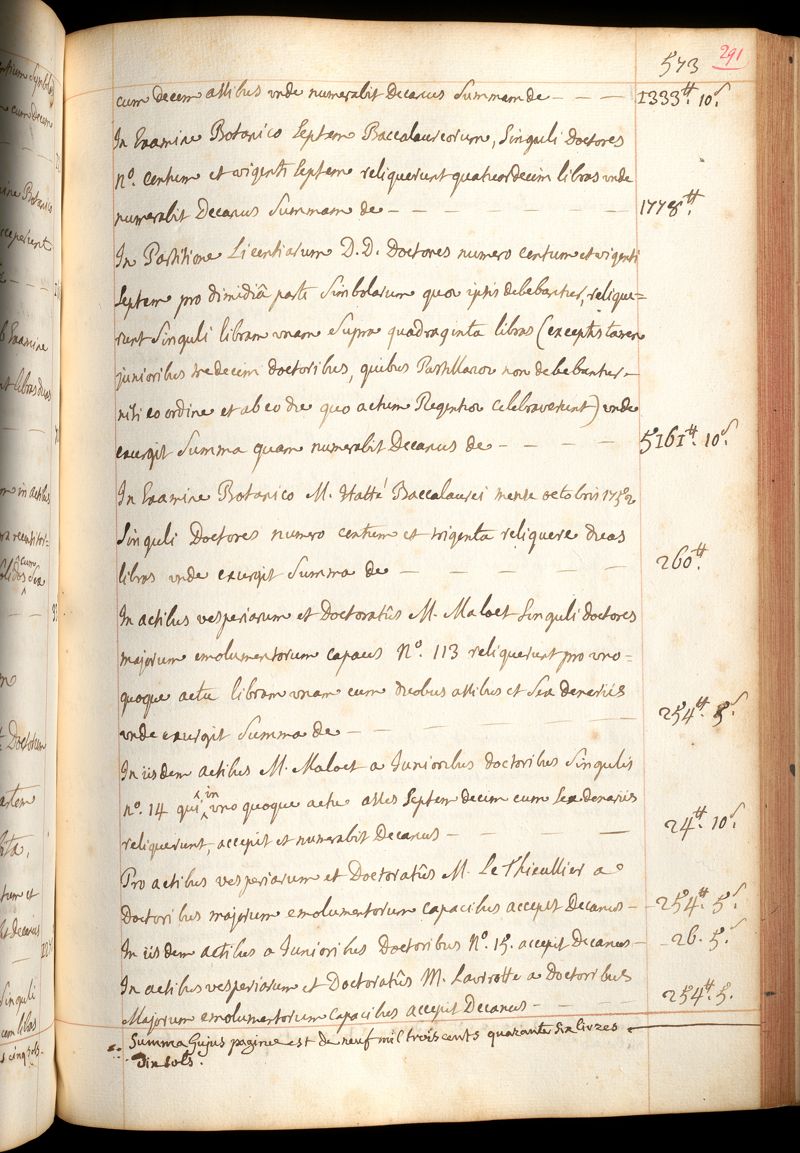 573 291
cum decem assibus unde numerabit Decanus Summam de — — — 1333tt. 10s.
In Examine Botanico Septem Baccalaureorum, Singuli Doctores
n°. centum et viginti Septem reliquerunt quatuordecim libras unde
numerabit Decanus Summam de — — — — — — 1778tt.
In Partitione Licentiarum D.D. Doctores numero centum et viginti
Septem pro dimidiâ parte Simbolarum quae ipsis debebantur, relique=
runt Singuli libram unam Supra quadraginta libras (exceptis tamen
junioribus tredecim doctoribus, quibus Partillaron non debebantur
nisi eo ordine et ab eo die quo actum Regentiae celebraverunt) unde
exurgit Summa quam numerabit Decanus de — — — — 5161tt. 10s.
In Examine Botanico M. Hatté Baccalaurei mense octobris 1752
Singuli Doctores numero centum et triginta reliquere duas
libras unde exurgit Summa de — — — — — 260tt.
In actibus vesperiarum et Doctoratûs M. Maloet Singuli doctores
majorum emolumentorum capaces n°. 113 reliquerunt pro uno=
quoque actu libram unam cum duobus assibus et Sex denariis
unde exurgit Summa de — — — — — — — 254tt. 5s.
In iisdem actibus M. Maloet a Junioribus doctoribus Singulis
n°. 14 qui in uno quoque actu asses Septemdecim cum Sex denariis
reliquerunt, accepit et numerabit Decanus — — — — 24tt. 10s.
Pro actibus vesperiarum et Doctoratûs M. Le Thieullier a
Doctoribus majorum emolumentorum capacibus accepit Decanus — 254tt. 5s.
In iisdem actibus a Junioribus Doctoribus N°. 15. accepit Decanus — 26. 5s.
In actibus vesperiarum et Doctoratûs M. Lavirotte a doctoribus
Majorum emolumentorum capacibus accepit Decanus — — — 254tt. 5.
Summa hujus paginae est de neuf mil trois cents quarante Six livres
Dix sols.